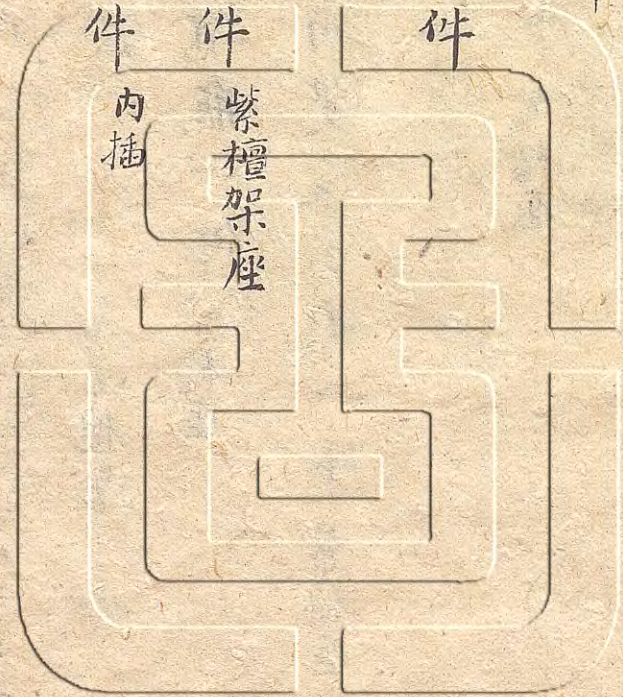 件
件 紫檀架座
件 内插